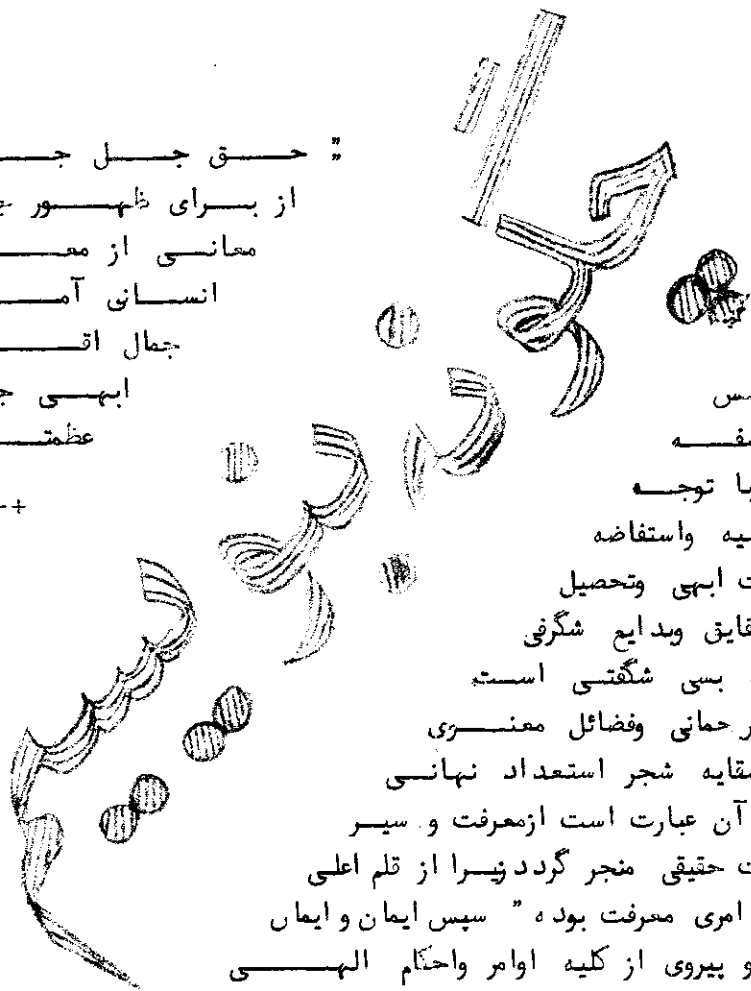 " حق جل جـ
از برای ظهور جـ
معانی از معـ
انسانی آمـ
جمال اقـ
ابهی جـ
عظمتـ
مس
فه
با توجه
یه واستفاضه
ت ابهی وتحصیل
قایق وبدایع شگرفی
بسی شگفتی است
رحمانی وفضائل معنوی
قایه شجر استعداد نهانی
آن عبارت است ازمعرفت و سیر
ت حقیقی منجر گردد زیرا از قلم اعلی
امری معرفت بوده " سپس ایمان و ایمان
و پیروی از کلیه اوامر واحکام الهی